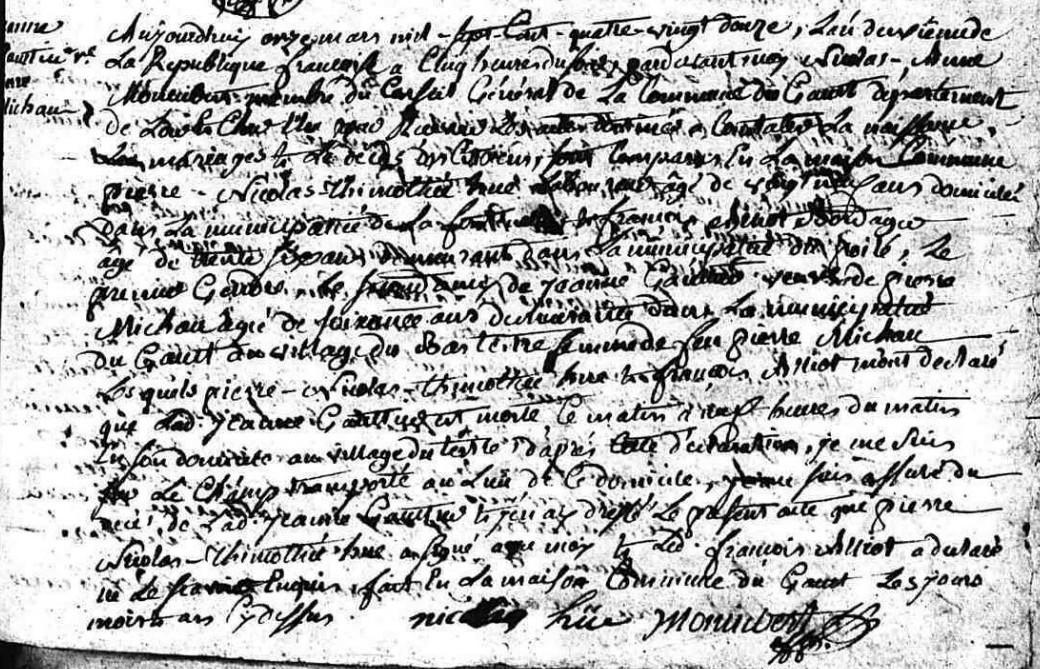 anne
Gautier ve
Michau
Aujourdhuy onze mars mil - sept Cent - quatre - vingt douze, L'an deuxieme de
La Republique françoise a Cinq heures du soir, pardevant moy Nicolas - Aime
Monnibert membre du Conseil Général de La Commune du Gault departement
de Loir & Cher Elu pour Recevoir Les actes destinés a Constater La naissance,
Les mariages & Le deces des Citoiens, sont Comparus En La maison Commune
pierre - Nicolas - thimothée hue Laboureur âgé de vingt neuf ans domicilié
dans La municipalité de La & françois alliot Bordager
agé de trente ans demeurant dans La municipalité du poile, Le
premier Gendre, Le second amy de Jeanne Gautier veuve de pierre
Michau agée de soixante ans demeurante dans La municipalité
du Gault au village du Bas tertre femme de feu pierre Michau
Lesquels pierre - Nicolas - thimothée hue & françois Alliot m'ont declaré
que Lad. Jeanne Gautier est morte Ce matin à neuf heures du matin
En son domicile au village du tertre d'après Cette déclaration, je me suis
sur Le Champ transporté au Lieu de Ce domicile, je me suis assuré du
decé de Lad. Jeanne Gautier & j'en ay dressé Le present acte que pierre
Nicolas - thimothée hue a signé avec moy & Led. françois Alliot a declaré
ne Le scavoir Enquis, fait En La maison Commune du Gault Les jours
mois & ans Cy dessus. nicolas hüe Monnibert